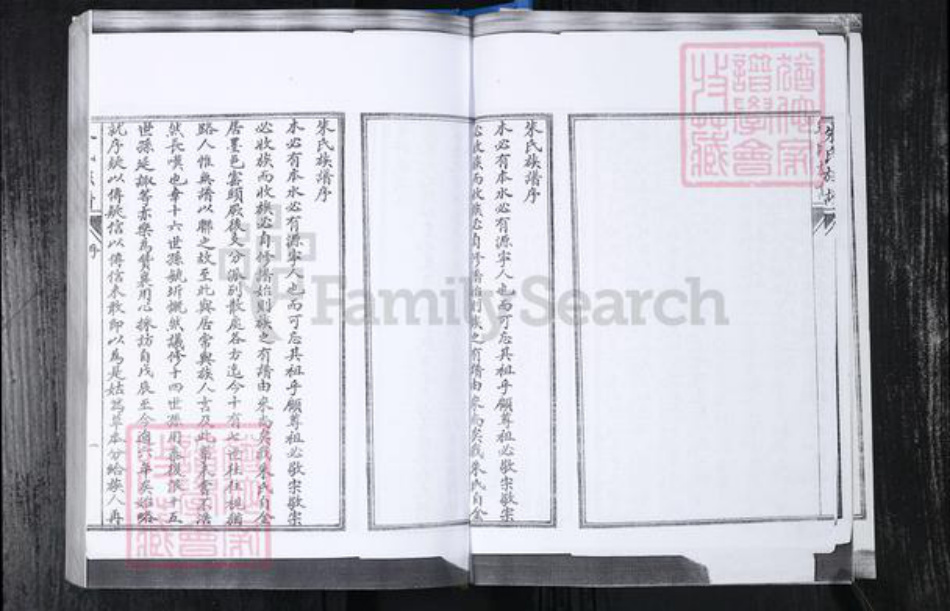 朱氏族譜
朱氏族譜序
木必有本水必有源寧人也而可忘其祖乎顧尊祖必敬宗敬宗
必收族而收族必自修譜始則族之有譜由來尚矣我朱氏自金
朱氏族譜序
木必有本水必有源寧人也而可忘其祖乎顧尊祖必敬宗敬宗
必收族而收族必自修譜始則族之有譜由來尚矣我朱氏自金
居墨邑窩頭厥後支分派別散處各方迄今十有七世往往視猶
路人惟無譜以聯之故至此與居常與族人言及此輩未嘗不浩
然長嘆也幸十六世孫毓圻慨然議修十四世孫用泰復偕十五
世孫延諏等亦樂為勷襄用心採訪自戊辰至今適六年矣始略
就序缺以傳疑信以傳信未敢即以為是姑為草本分給族人再
序
一
FamilySearch